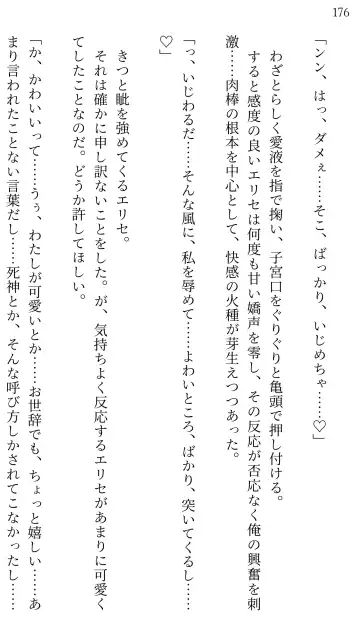 176
「ンン、はっ、ダメぇ……そこ、ばっかり、いじめちゃ……♡」
わざとらしく愛液を指で掬い、子宮口をぐりぐりと亀頭で押し付ける。
すると感度の良いエリセは何度も甘い嬌声を零し、その反応が否応なく俺の興奮を刺
激……肉棒の根本を中心として、快感の火種が芽生えつつあった。
「っ、いじわるだ……そんな風に、私を辱めて……よわいところ、ばかり、突いてくるし……
♡」
きつと眦を強めてくるエリセ。
それは確かに申し訳ないことをした。が、気持ちよく反応するエリセがあまりに可愛く
てしたことなのだ。どうか許してほしい。
「か、かわいいって……うぅ、わたしが可愛いとか……お世辞でも、ちょっと嬉しい……あ
まり言われたことない言葉だし……死神とか、そんな呼び方しかされてこなかったし……